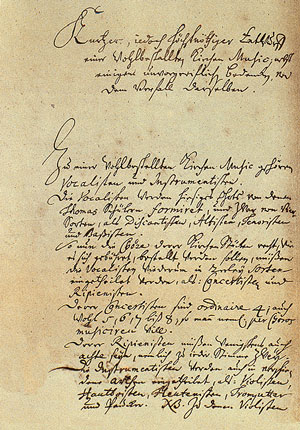 Kurtzer, iedoch höchstnöthiger Entwurff
einer wohlbestallten Kirchen Music; nebst
einigem unvorgreiflichen Bedencken von
dem Verfall derselben.
Zu einer wohlbestellten Kirchen Music gehören
Vocalisten und Instrumentisten.
Die Vocalisten werden hiesiges Ohrts von denen
Thomas Schülern formiret, und zwar von vier
Sorten, als Discantisten, Altisten, Tenoristen
und Bassisten.
So nun die Chöre derer Kirchen Stücken recht, wie
es sich gebühret, bestellt werden sollen, müßen
die Vocalisten wiederum in 2erley Sorten
eingetheilet werden, als: Concertisten und
Ripienisten.
Derer Concertisten sind ordinaire 4; auch
wohl 5, 6, 7 biß 8; so mann nemlich per Choros
musiciren will.
Derer Ripienisten müßen wenigstens auch
achte seyn, nemlich zu ieder Stimme zwey.
Die Instrumentisten werden auch in verschie-
dene Arthen eingetheilet, als: Violisten,
Hautboisten, Fleutenisten, Trompetter
und Paucker. NB. Zu denen Violisten